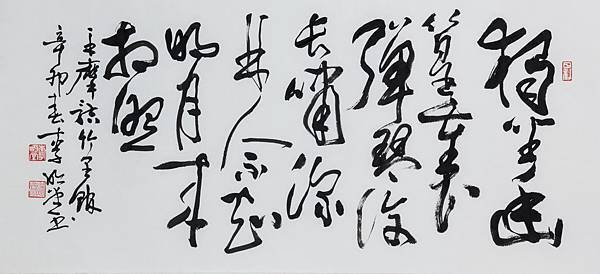 獨坐幽
篁裏
彈琴復
長嘯深
林人不知
明月来
相照
王摩詰竹里館
辛卯春李書